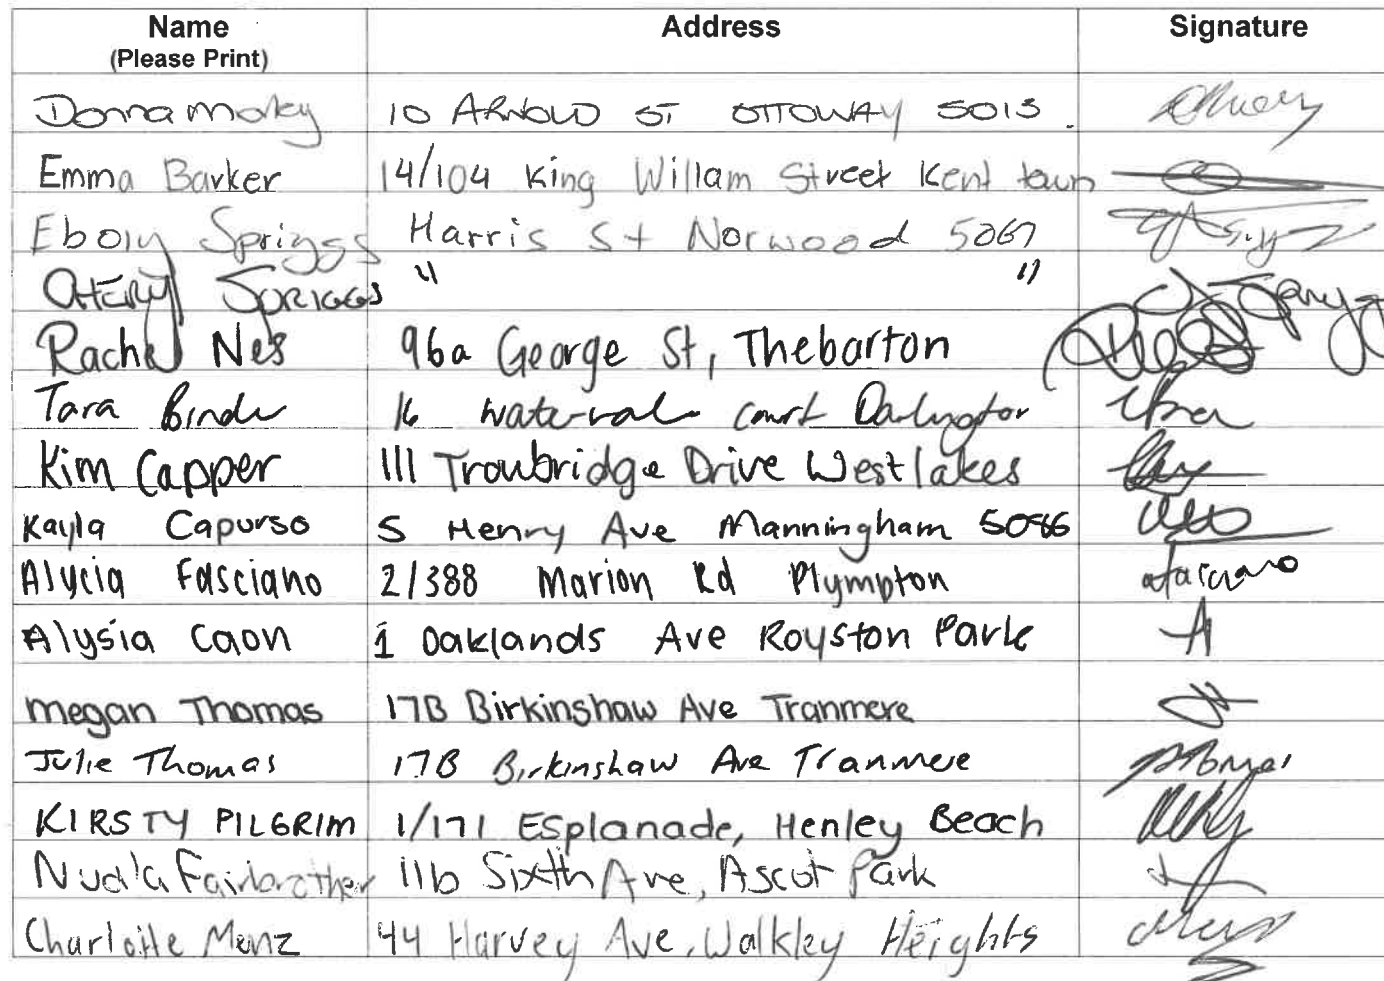 Name Address Signature
(Please Print)
Donna Morley 10 ARNOLD ST OTTOWAY 5013.
Emma Barker 14/104 King Willam Street Kent town
Ebony Spriggs Harris St Norwood 5067
CHERYL SPRIGGS " "
Rachel Nes 96a George St, Thebarton
Tara 16 court Darlington
Kim Capper 111 Troubridge Drive Westlakes
Kayla Capurso 5 Henry Ave Manningham 5086
Alycia Fasciano 2/388 Marion Rd Plympton
Alysia Caon 1 Oaklands Ave Royston Park
Megan Thomas 17B Birkinshaw Ave Tranmere
Julie Thomas 17B Birkinshaw Ave Tranmere
KIRSTY PILGRIM 1/171 Esplanade, Henley Beach
Nuala Fairbrother 11b Sixth Ave, Ascot Park
Charlotte Menz 44 Harvey Ave, Walkley Heights